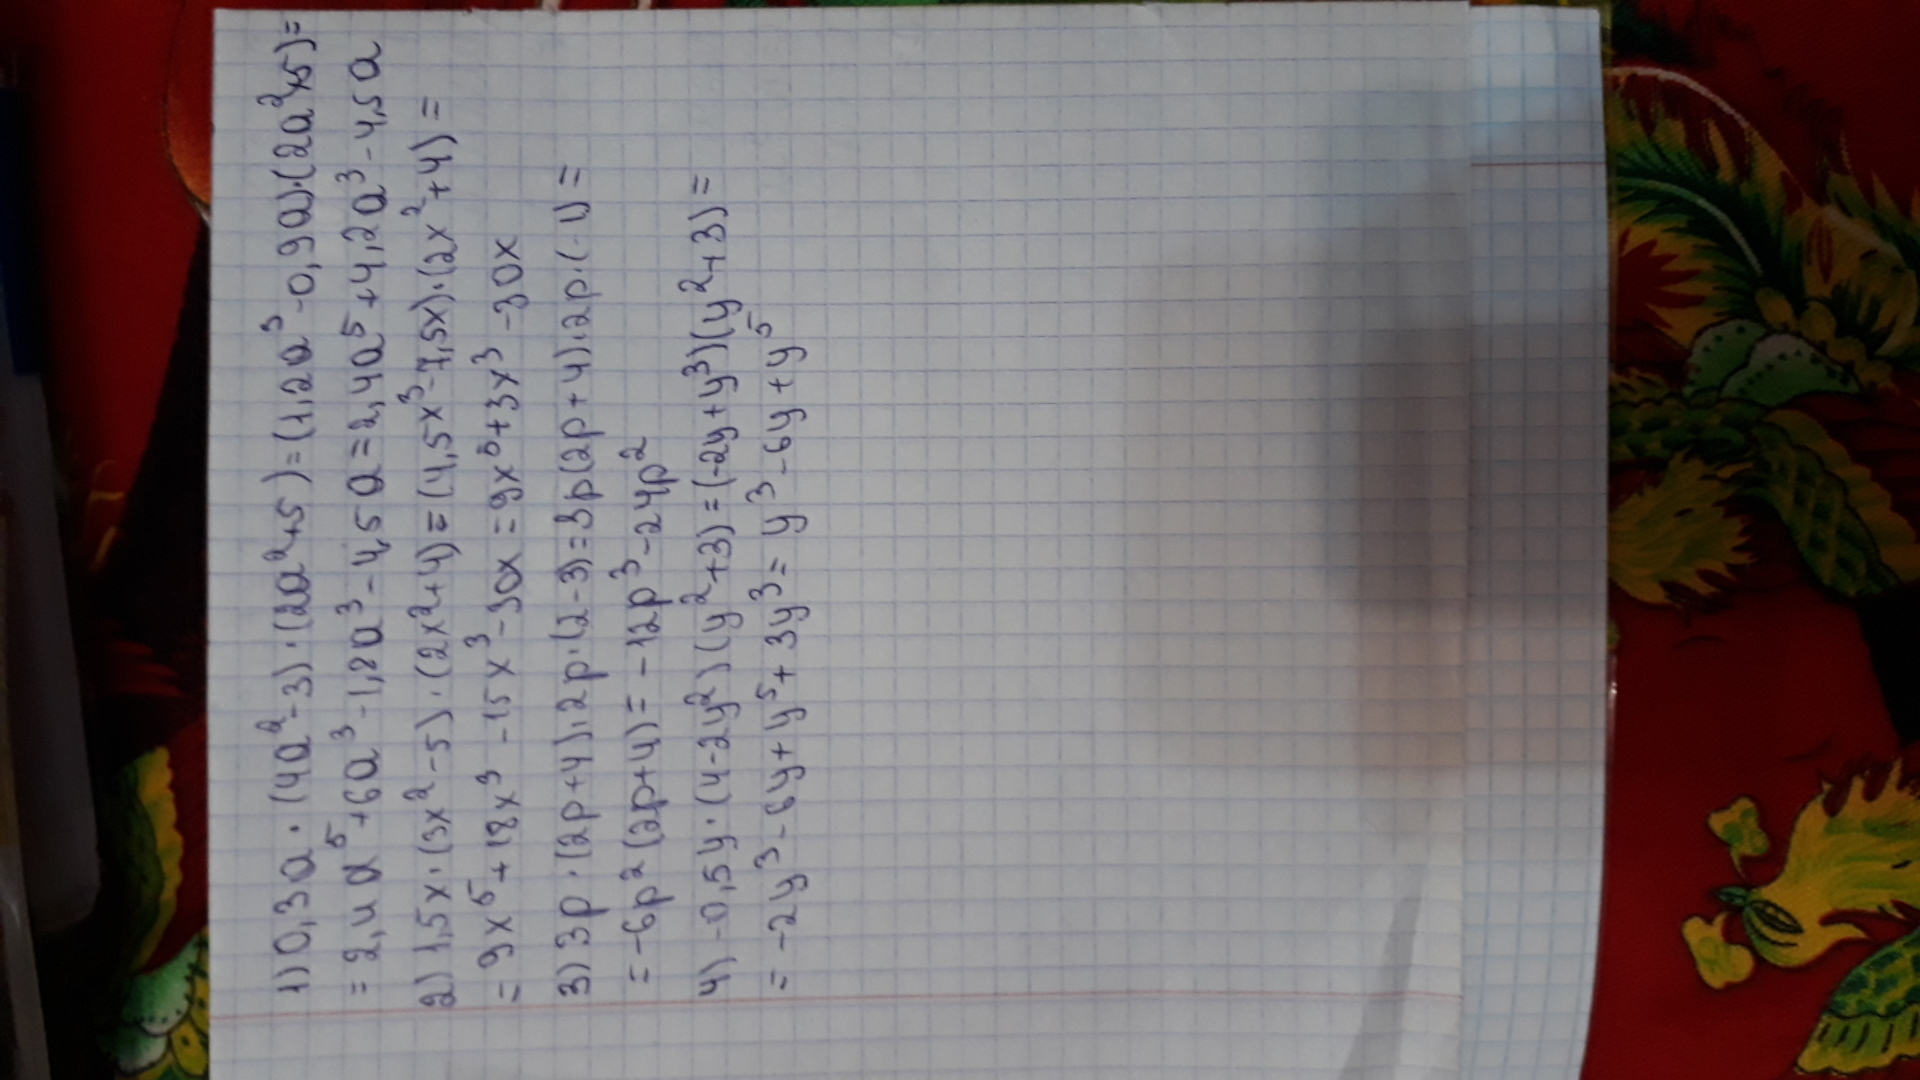 1) 0,3a · (4a² - 3) · (2a² + 5) = (1,2a³ - 0,9a) · (2a² + 5) =
= 2,4a⁵ + 6a³ - 1,8a³ - 4,5a = 2,4a⁵ + 4,2a³ - 4,5a
2) 1,5x · (3x² - 5) · (2x² + 4) = (4,5x³ - 7,5x) · (2x² + 4) =
= 9x⁵ + 18x³ - 15x³ - 30x = 9x⁵ + 3x³ - 30x
3) 3p · (2p + 4) · 2p · (2 - 3) = 3p (2p + 4) · 2p · (-1) =
= -6p² (2p + 4) = -12p³ - 24p²
4) -0,5y · (4 - 2y²) (y² + 3) = (-2y + y³) (y² + 3) =
= -2y³ - 6y + y⁵ + 3y³ = y³ - 6y + y⁵